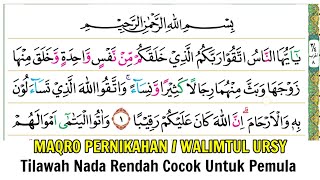 بِسْمِ اللّٰهِ الرَّحْمٰنِ الرَّحِيْمِ
يٰٓاَيُّهَا النَّاسُ اتَّقُوْا رَبَّكُمُ الَّذِيْ خَلَقَكُمْ مِّنْ نَّفْسٍ وَّاحِدَةٍ وَّخَلَقَ مِنْهَا
زَوْجَهَا وَبَثَّ مِنْهُمَا رِجَالًا كَثِيْرًا وَّنِسَاۤءً ۚ وَاتَّقُوا اللّٰهَ الَّذِيْ تَسَاۤءَلُوْنَ
بِهٖ وَالْاَرْحَامَ ۗ اِنَّ اللّٰهَ كَانَ عَلَيْكُمْ رَقِيْبًا ١ وَاٰتُوا الْيَتٰمٰىٓ اَمْوَالَهُمْ
MAQRO PERNIKAHAN / WALIMTUL URSY
Tilawah Nada Rendah Cocok Untuk Pemula